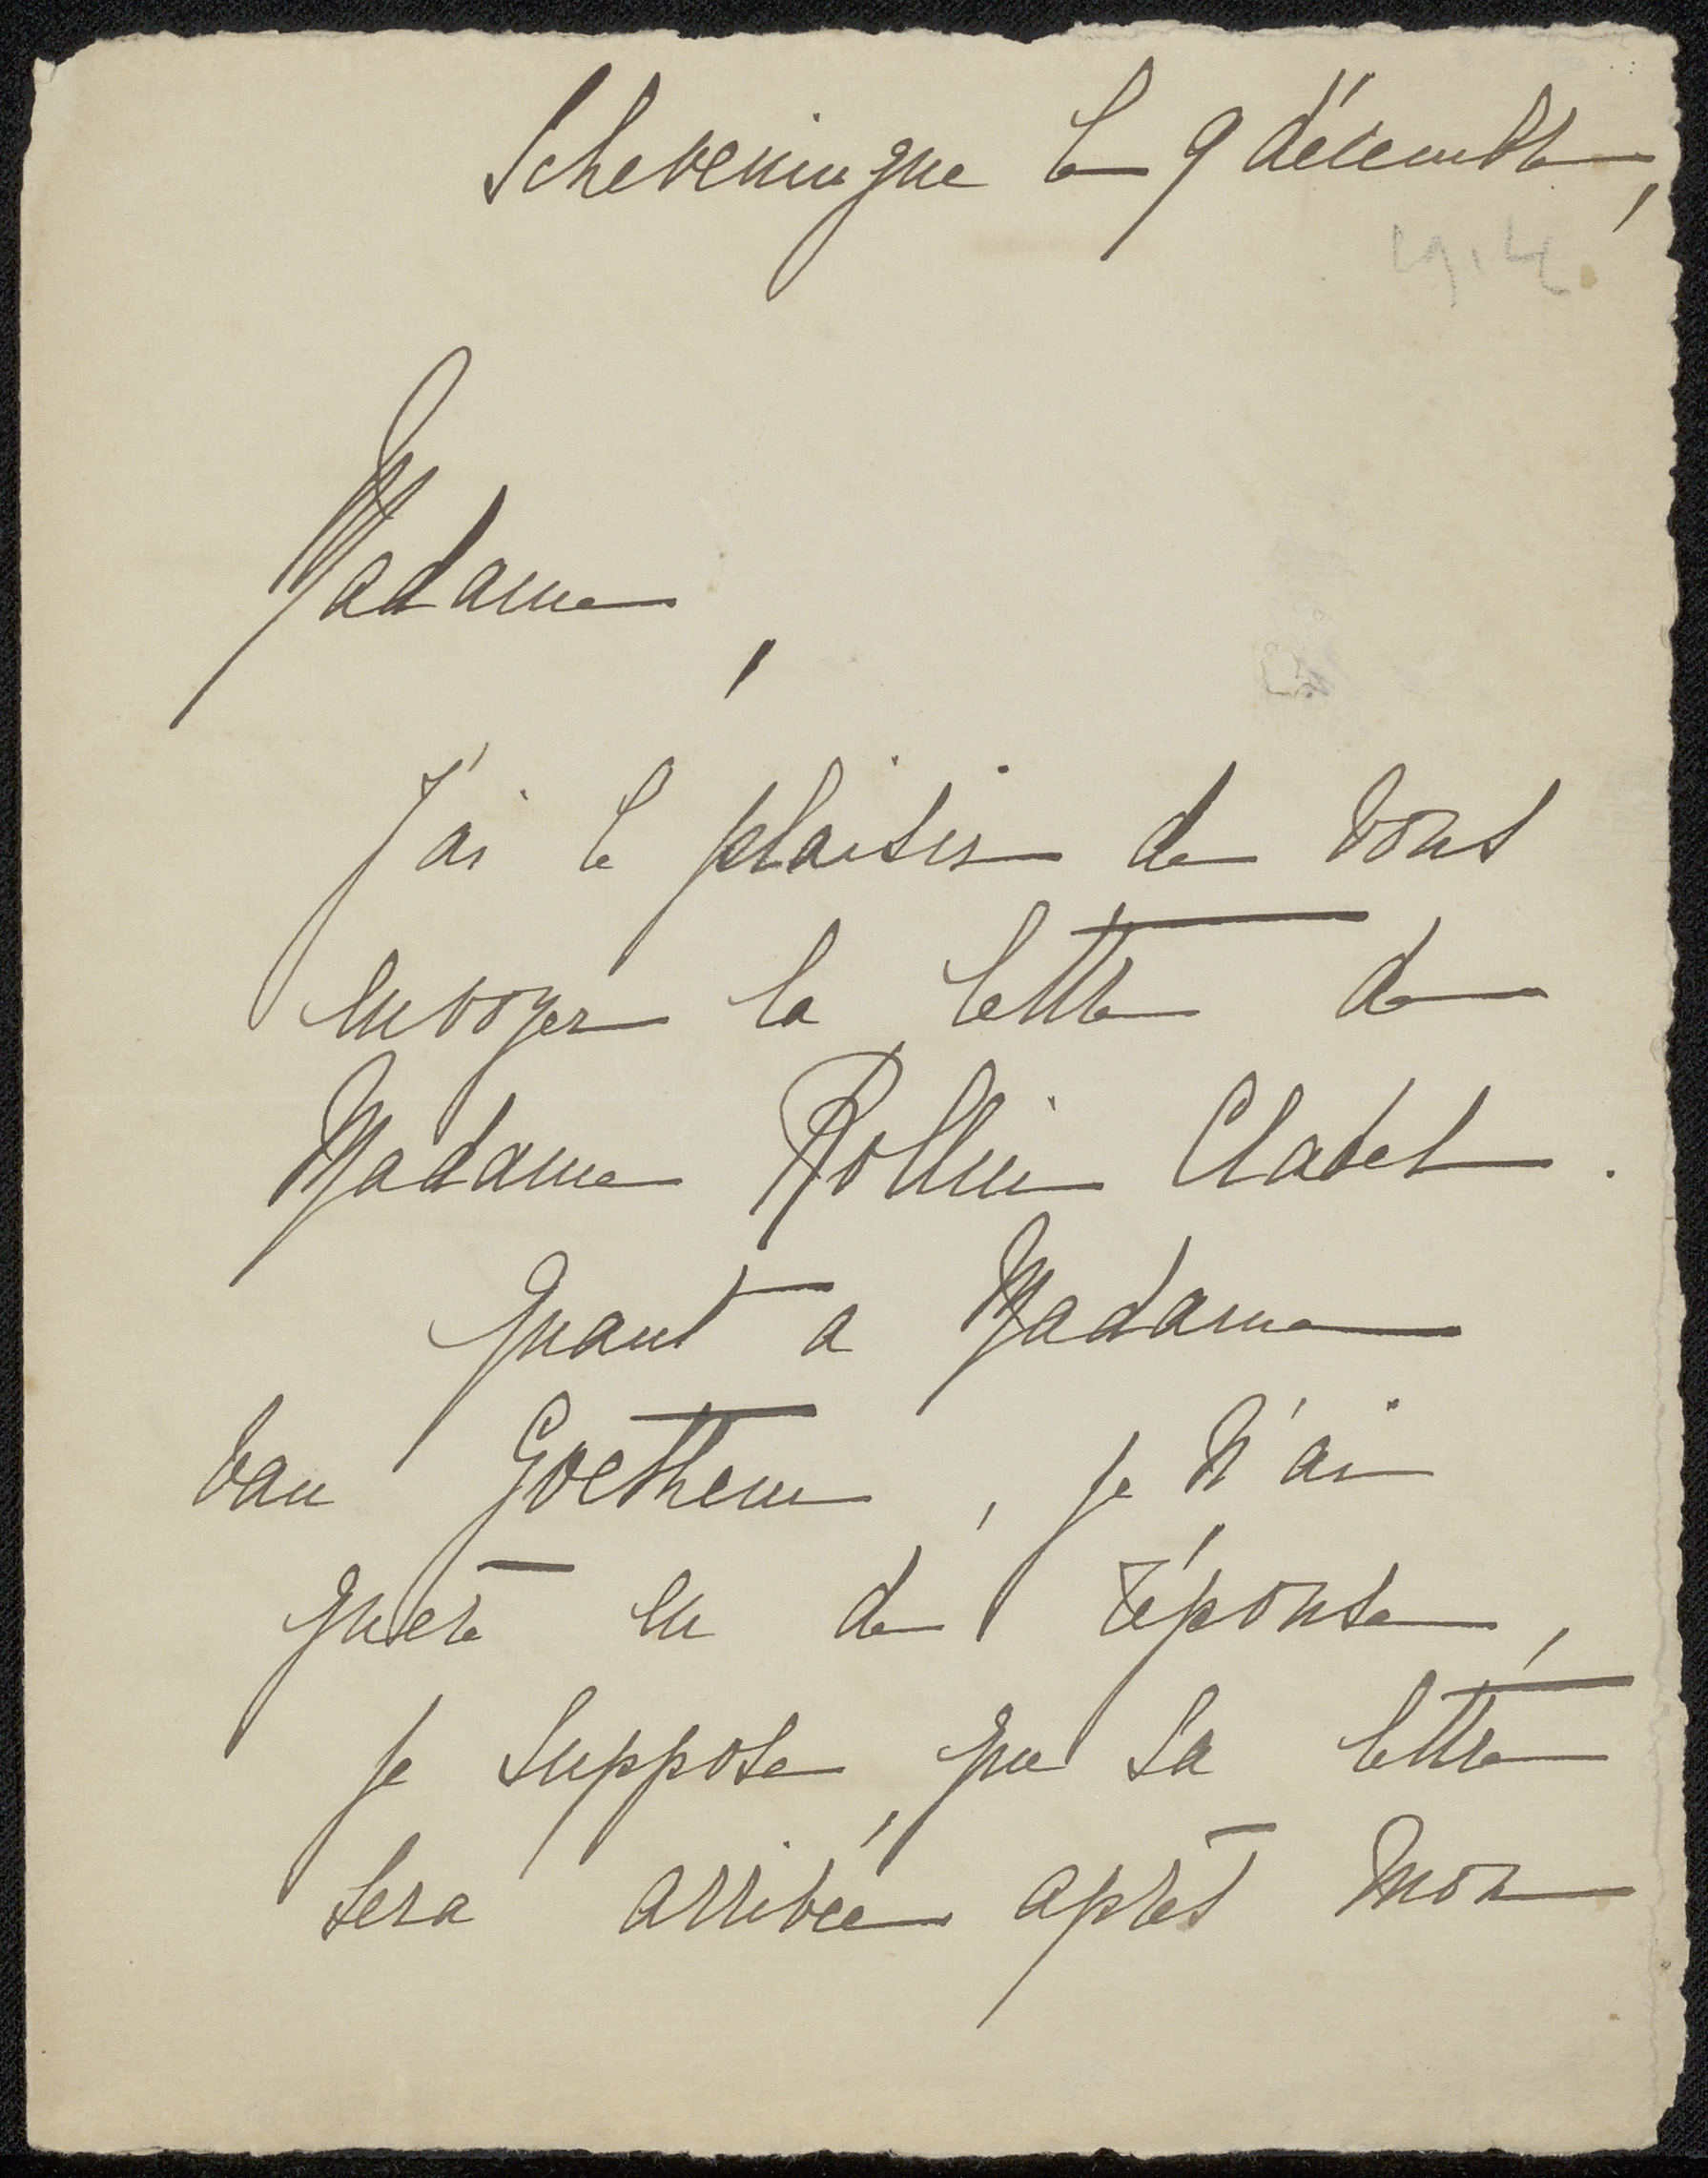 Scheveningue le 9 décembre,
1914
Madame,
J'ai le plaisir de vous
envoyer la lettre de
Madame Rollin Cladel.
Quant a Madame
van Goethem, je n'ai
guère eu de réponse,
je suppose, que sa lettre
sera arrivée après mon